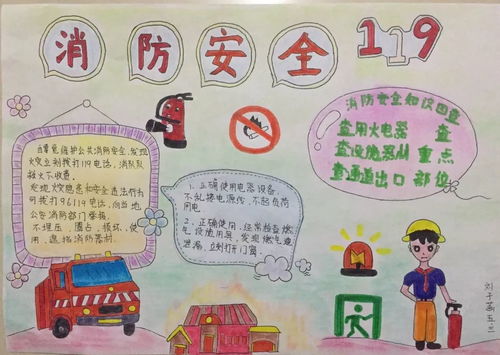 消防安全 119
自覺维护公共消防安全,发现
火灾立刻拨打119电话,消防队
救火不收费.
发现火灾隐患和安全违法行为
可拨打96119电话,向当地
公告消防部门举报.
不埋压、圈占、损坏、使
用、遮挡消防器材.
1、正确使用电器设备,
不乱接电源线,不超负荷
用电.
2、正确使用、经常检查燃
气设施用具,发现燃气
泄漏,立刻打开门窗.
消防安全知识四查
查用火电器 查
查设施器材 重点
查通道出口 部位